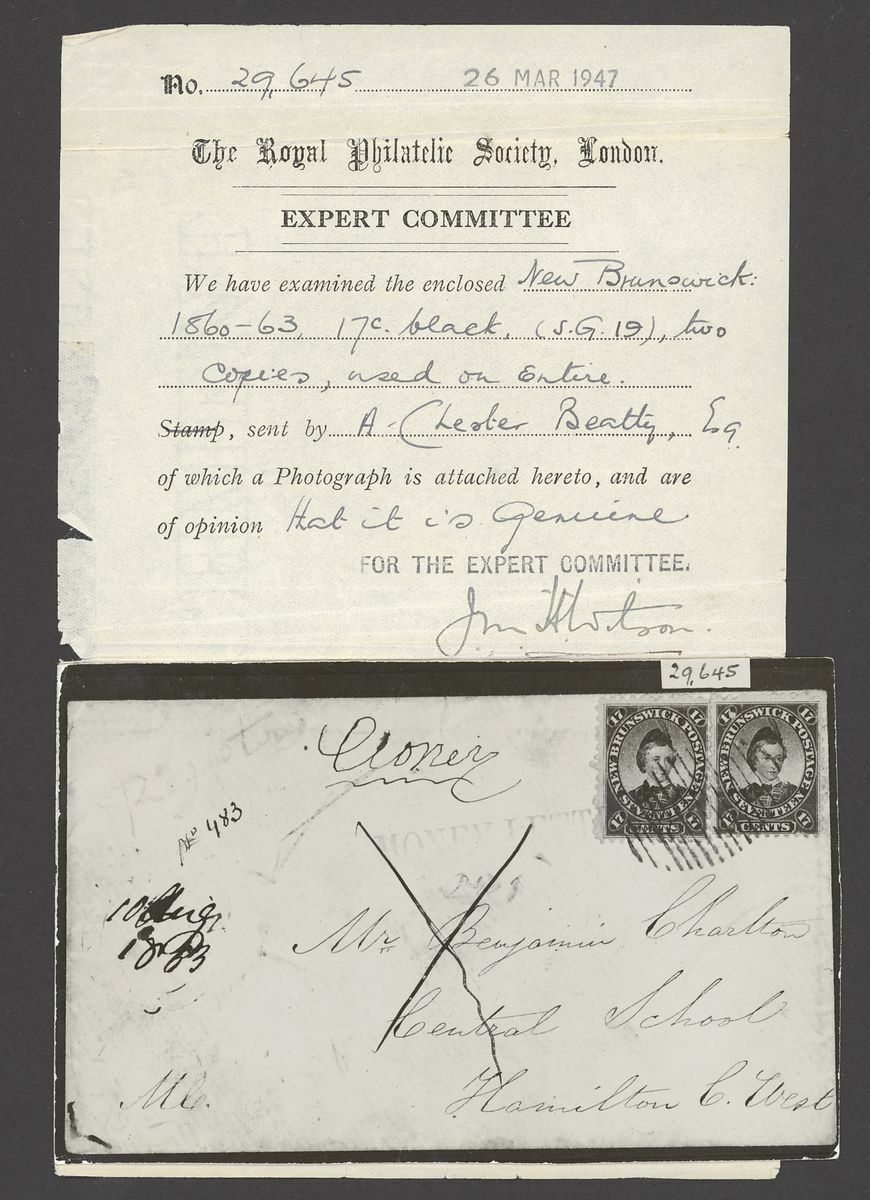 No. 29,645 26 MAR 1947
The Royal Philatelic Society, London.
EXPERT COMMITTEE
We have examined the enclosed New Brunswick:
1860-63, 17c. black, (S.G. 19), two
copies, used on Entire.
Stamp, sent by A. Chester Beatty, Esq
of which a Photograph is attached hereto, and are
of opinion that it is Genuine
FOR THE EXPERT COMMITTEE.
29,645
17 NEW BRUNSWICK POSTAGE 17
17 SEVENTEEN 17
CENTS
17 NEW BRUNSWICK POSTAGE 17
17 SEVENTEEN 17
CENTS
Money
No 483
MONEY LETTER
10 Aug
1863
Mr Benjamin Charlton
Central School
Hamilton C. West